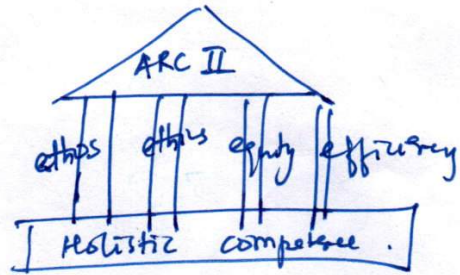 ARC II
ethos ethics equity efficiency
Holistic competence .